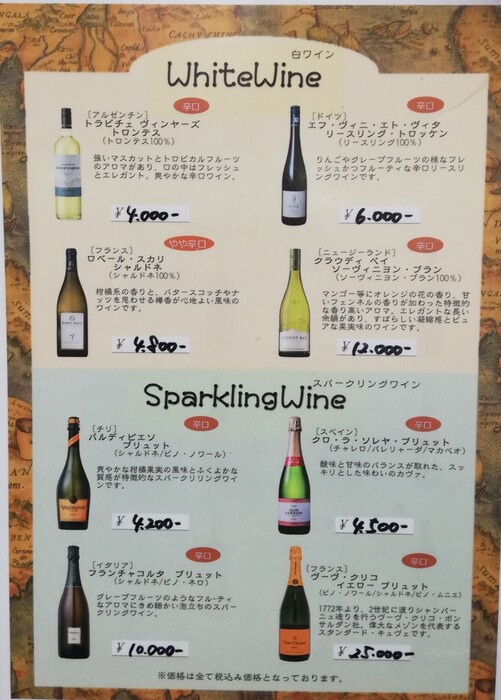 白ワイン
WhiteWine
辛口
[アルゼンチン]
トラピチェ ヴィンヤーズ
トロンテス
(トロンテス100%)
強いマスカットとトロピカルフルーツ
のアロマがあり、口の中はフレッシュ
とエレガント、爽やかな辛口ワイン。
¥4.000-
辛口
[ドイツ]
エフ・ヴィニ・エト・ヴィタ
リースリング・トロッケン
(リースリング100%)
りんごやグレープフルーツの様なフレ
ッシュかつフルーティな辛口リースリ
ングワインです。
¥6.000-
やや辛口
[フランス]
ロベール・スカリ
シャルドネ
(シャルドネ100%)
柑橘系の香りと、バタースコッチやナ
ッツを思わせる樽香が心地よい風味の
ワインです。
¥4.800-
辛口
[ニュージーランド]
クラウディ ベイ
ソーヴィニヨン・ブラン
(ソーヴィニヨン・ブラン100%)
マンゴー等にオレンジの花の香り、甘
いフェンネルの香りが加わった特徴的
な香り高いアロマ。エレガントな長い
余韻があり、すばらしい凝縮感とピュ
アな果実味のワインです。
¥12.000-
スパークリングワイン
SparklingWine
辛口
[チリ]
バルディビエソ
ブリュット
(シャルドネ/ピノ・ノワール)
爽やかな柑橘果実の風味とふくよかな
質感が特徴的なスパークリングワイ
ンです。
¥4.200-
辛口
[スペイン]
クロ・ラ・ソレヤ・ブリュット
(チャレロ/パレリャーダ/マカベオ)
酸味と甘味のバランスが取れた、スッ
キリとした味わいのカヴァ。
¥4.500-
辛口
[イタリア]
フランチャコルタ ブリュット
(シャルドネ/ピノ・ネロ)
グレープフルーツのようなフルーティ
なアロマにきめ細かい泡立ちのスパー
クリングワイン。
¥10.000-
辛口
[フランス]
ヴーヴ・クリコ
イエロー ブリュット
(ピノ・ノワール/シャルドネ/ピノ・ムニエ)
1772年より、2世紀に渡りシャンパー
ニュ造りを行うヴーヴ・クリコ・ポン
サルダン社。偉大なメゾンを代表する
スタンダード・キュヴェです。
¥25.000-
※価格は全て税込み価格となっております。